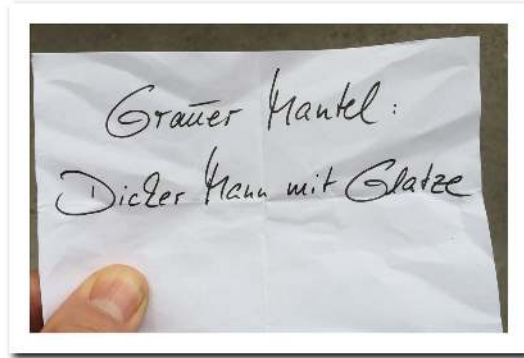 Grauer Mantel:
Dicker Mann mit Glatze